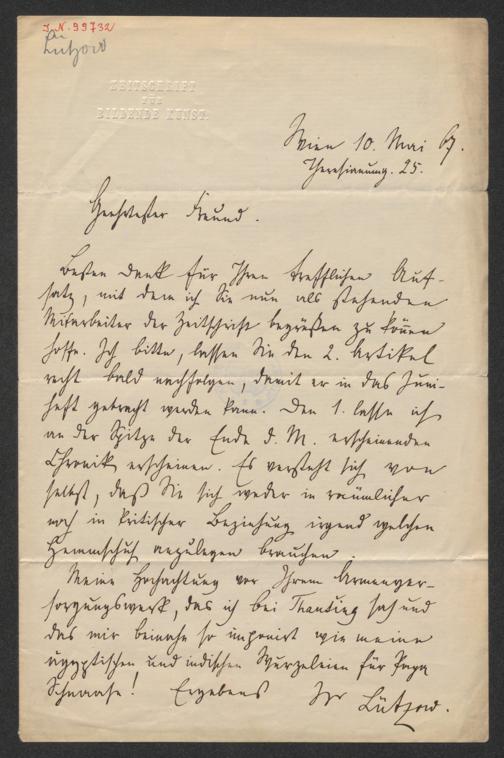 J.N. 99732
Lützow
ZEITSCHRIFT
FÜR
BILDENDE KUNST.
Wien 10. Mai 67.
Theresianumg. 25.
Geehrtester Freund.
Besten Dank für Ihren trefflichen Auf-
satz, mit dem ich Sie nun als stehenden
Mitarbeiter der Zeitschrift begrüßen zu können
hoffe. Ich bitte, lassen Sie den 2. Artikel
recht bald nachfolgen, damit er in das Juni-
heft gebracht werden kann. Den 1. lasse ich
an der Spitze der Ende d. M. erscheinenden
Chronik erscheinen. Es versteht sich von
selbst, daß Sie sich weder in räumlicher
noch in kritischer Beziehung irgend welchen
Hemmschuh anzulegen brauchen.
Meine Hochachtung vor Ihrem Armenver-
sorgungswerk, das ich bei Thausing sah und
das mir beinahe so imponirt wie meine
ägyptischen und indischen Wurzeleien für Papa
Schnaase! Ergebens Ihr Lützow.